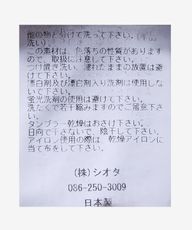 他の物と分けて洗って下さい。(単品
洗い)
この素材は、色落ちの性質がありますの
で、取扱に注意して下さい。
つけ置き洗い、濡れたままの放置は避け
て下さい。
漂白剤及び漂白剤入り洗剤は使用しな
いで下さい。
蛍光洗剤の使用は避けて下さい。
洗たくで若干縮みますのでご留意下さ
い。
タンブラー乾燥はおさけ下さい。
日向で干さないで、陰干して下さい。
アイロン使用の際は、乾燥アイロンに
当て布をして下さい。
(株)シオタ
086-250-3009
日本製